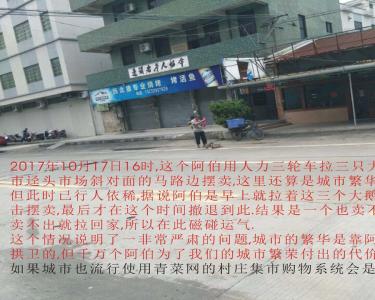 烤活鱼
2017年10月17日16时,这个阿伯用人力三轮车拉三只大
市迳头市场斜对面的马路边摆卖,这里还算是城市繁华
但此时己行人依稀,据说阿伯是早上就拉着这三个大鹅
击摆卖,最后才在这个时间撤退到此.结果是一个也卖不
卖不出就拉回家,所以在此磁碰运气.
这个情况说明了一非常严肃的问题,城市的繁华是靠阿
拱卫的,但千万个阿伯为了我们的城市繁荣付出的代价
如果城市也流行使用青菜网的村庄集市购物系统会是